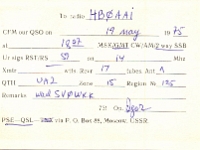 To radio HB0AAI
CFM our QSO on 19 may 1975
at 1837 CW/AM/2 way SSB
Ur sign RST/RS 59 on 14 Mhz
Xmtr with Rcvr 17 tubes Ant
QTH UA2 Zone 15 Region Nr 125
Remarks
73! Op:
PSE—QSL— via P. O. Box 88, Moscow, USSR